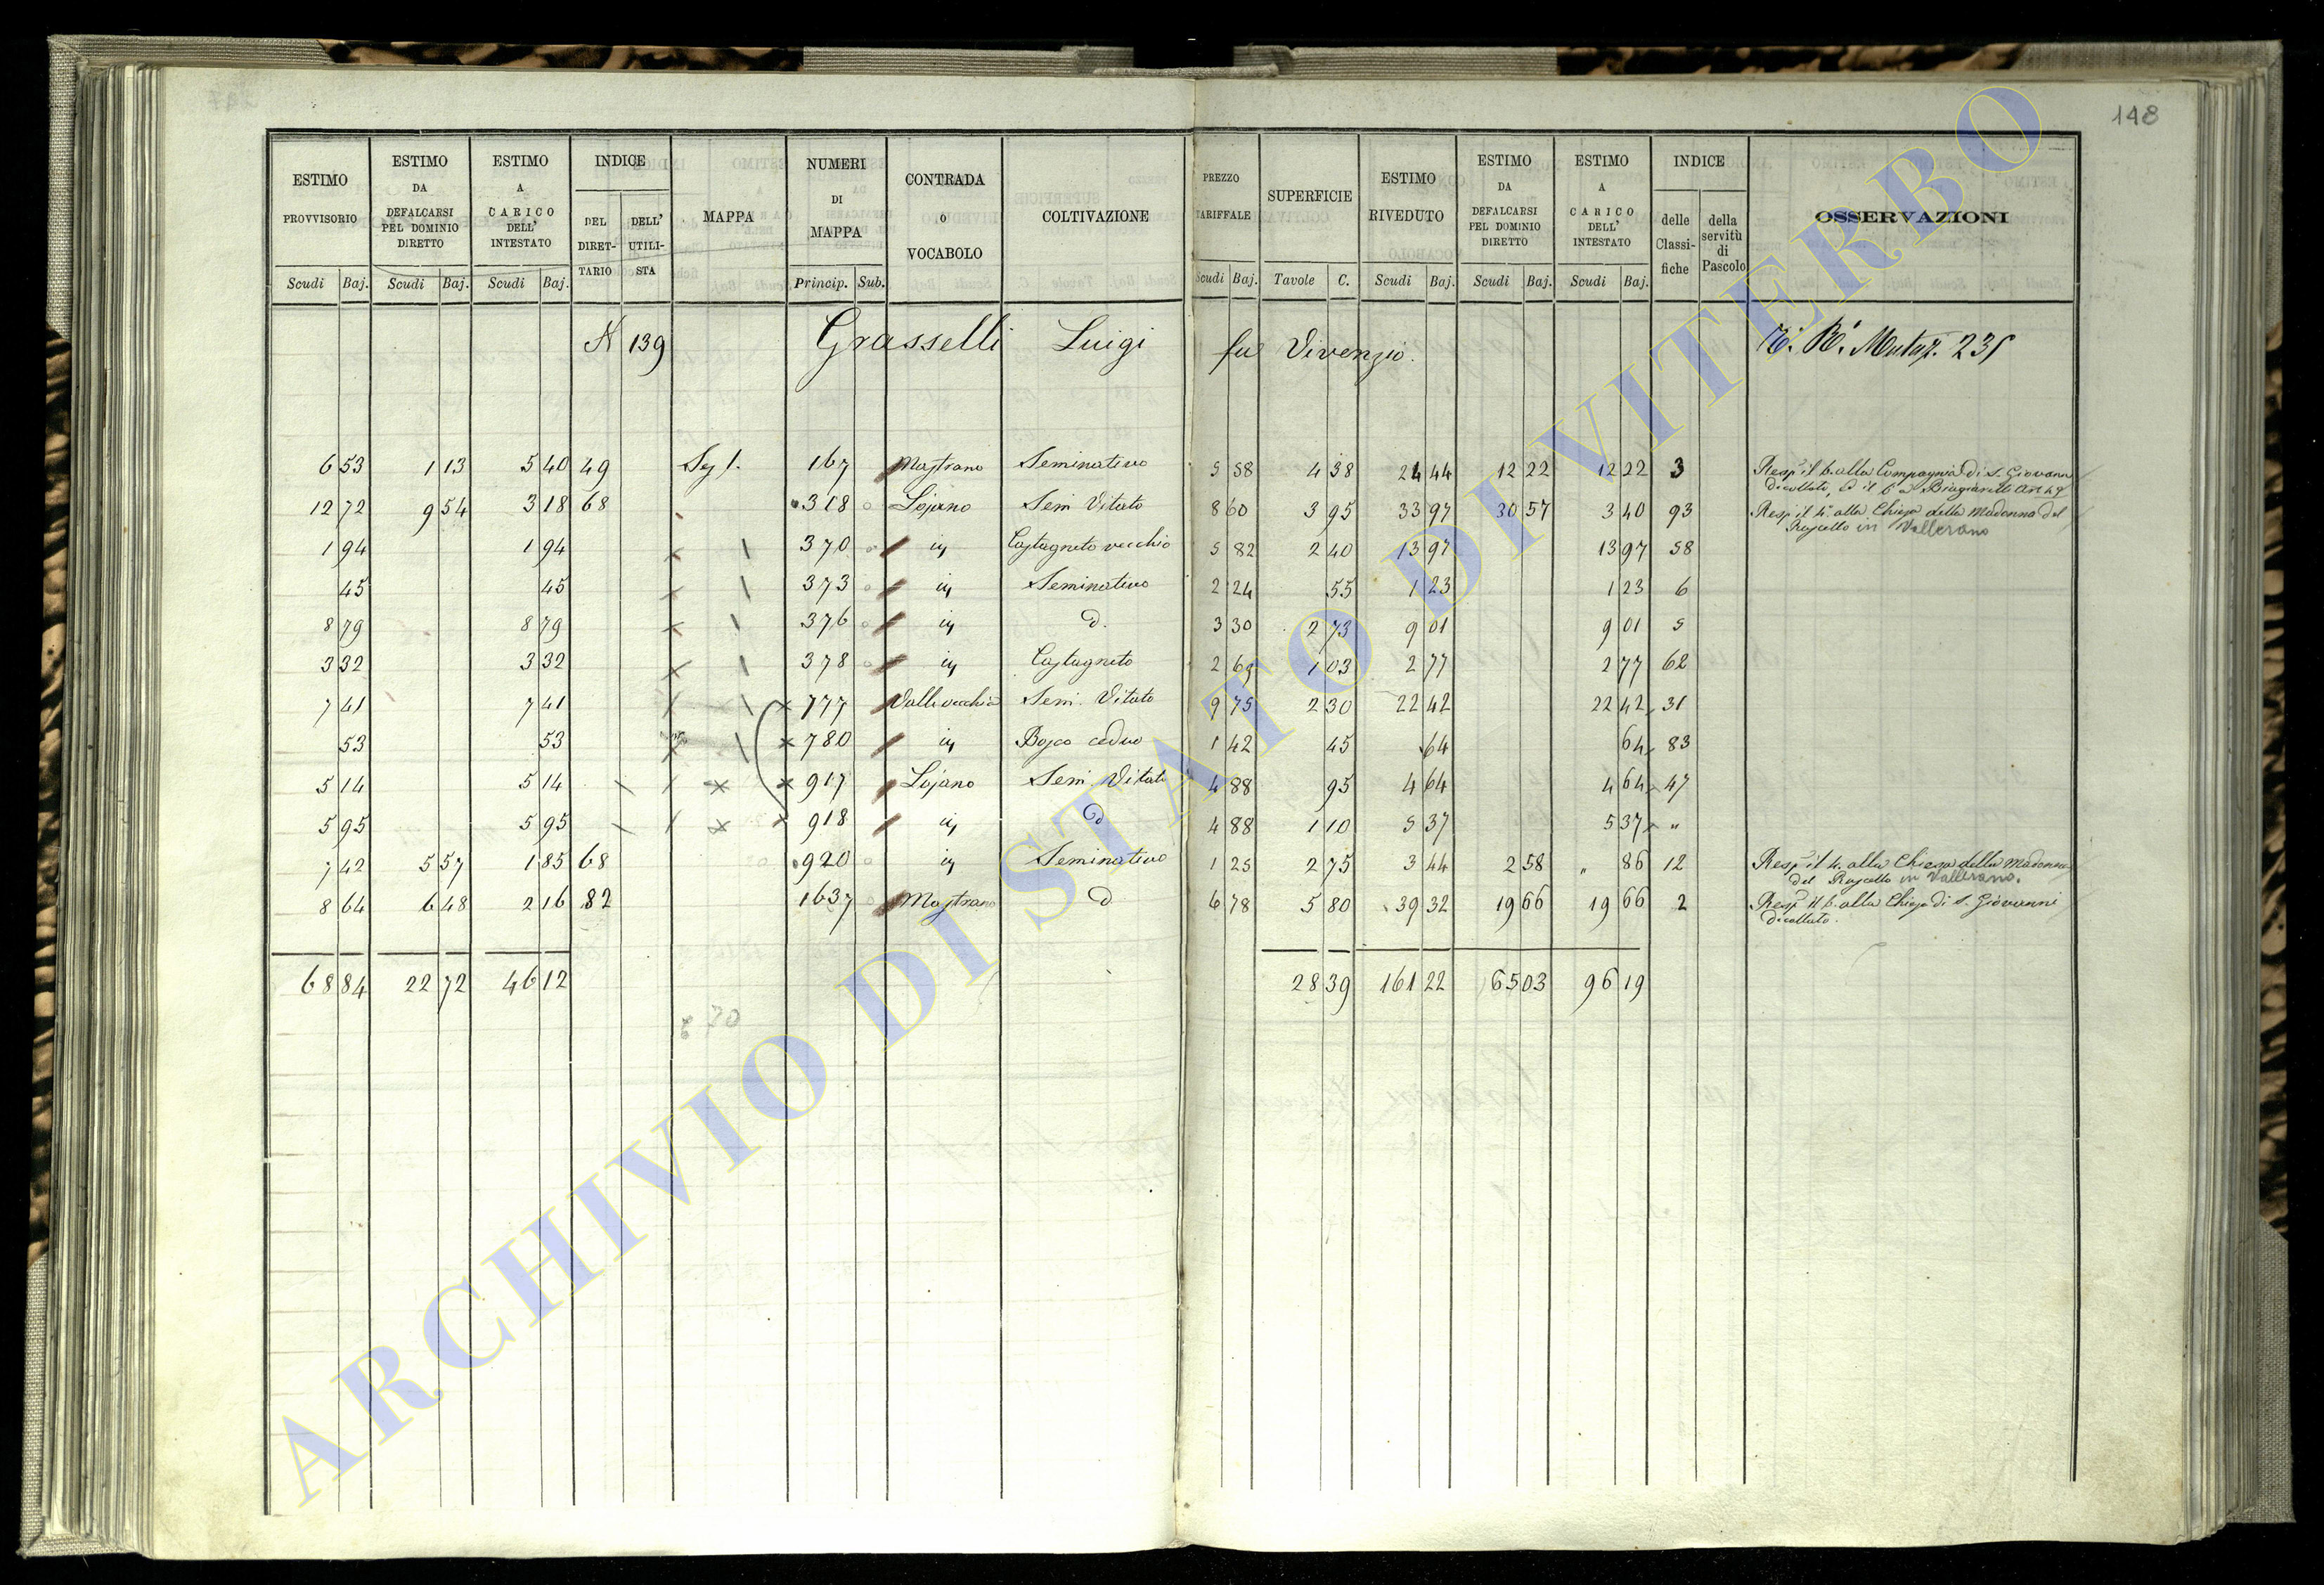 148
ESTIMO PROVVISORIO | ESTIMO DA DEFALCARSI PEL DOMINIO DIRETTO | ESTIMO A CARICO DELL' INTESTATO | INDICE DEL DIRET-TARIO | DELL' UTILI-STA | MAPPA | NUMERI DI MAPPA | CONTRADA O VOCABOLO | COLTIVAZIONE | PREZZO TARIFFALE | SUPERFICIE | ESTIMO RIVEDUTO | ESTIMO DA DEFALCARSI PEL DOMINIO DIRETTO | ESTIMO A CARICO DELL' INTESTATO | INDICE delle Classi-fiche | della servitù di Pascolo | OSSERVAZIONI
Scudi Baj. Scudi Baj. Scudi Baj. Princip. Sub. Scudi Baj. Tavole C. Scudi Baj. Scudi Baj. Scudi Baj.
N 139 Grasselli Luigi fu Vivenzio. Mutaz. 231
6 53 1 13 5 40 49 167 Mastrano Seminativo 5 58 4 38 24 44 12 22 12 22 3 Resp il 6. alla Compagnia di S. Giovanni
decollato, ed il 6 a Biagiarelli Art 49
12 72 9 54 3 18 68 318 Lojano Sem Vitato 8 60 3 95 33 97 30 57 3 40 93 Resp il 4. alla Chiesa della Madonna del
Ruscello in Vallerano
1 94 1 94 370 Castagneto vecchio 5 82 2 40 13 97 13 97 58
45 45 373 Seminativo 2 24 55 1 23 1 23 6
8 79 8 79 376 d. 3 30 2 73 9 01 9 01 5
3 32 3 32 378 Castagneto 2 69 1 03 2 77 2 77 62
7 41 7 41 777 Valle vecchia Sem. Vitato 9 75 2 30 22 42 22 42 31
53 53 780 Bosco ceduo 1 42 45 64 64 83
5 14 5 14 917 Lojano Sem. Vitato 4 88 95 4 64 4 64 47
5 95 5 95 918 d 4 88 1 10 5 37 5 37 "
7 42 5 57 1 85 68 920 Seminativo 1 25 2 75 3 44 2 58 " 86 12 Resp il 4. alla Chiesa della Madonna
del Ruscello in Vallerano.
8 64 6 48 2 16 82 1637 Mastrano d 6 78 5 80 39 32 19 66 19 66 2 Resp il 6. alla Chiesa di S. Giovanni
decollato.
68 84 22 72 46 12 28 39 161 22 65 03 96 19
ARCHIVIO DI STATO DI VITERBO